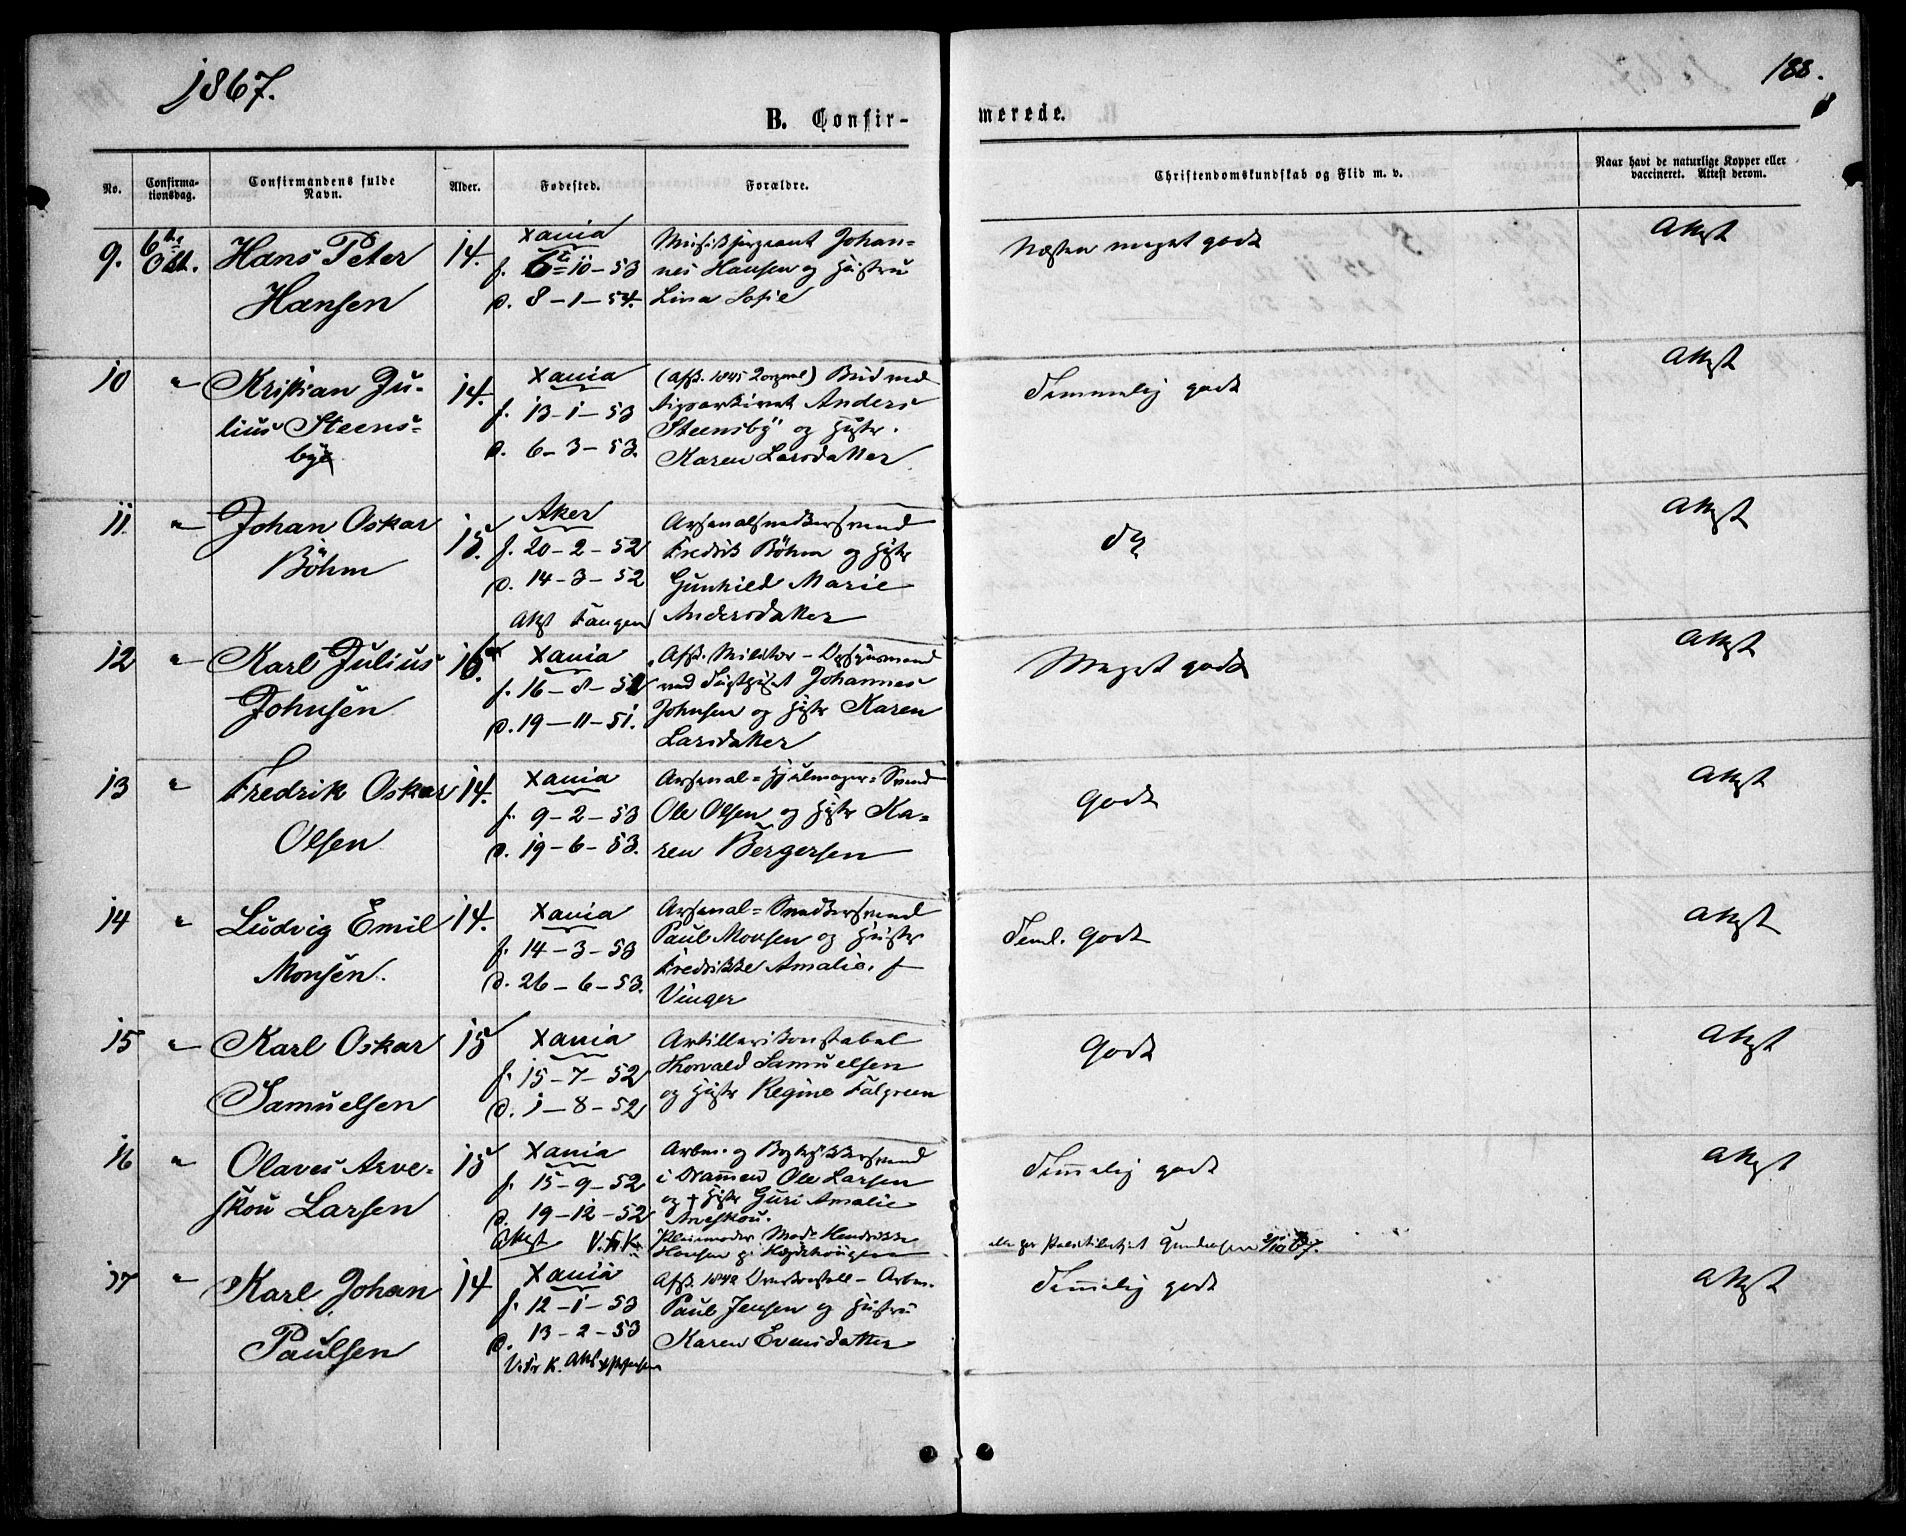 1867.
188.
8
B. Confir-
merede.
No.
Confirma-
tionsdag.
Confirmandens fulde
Navn.
Alder.
Fødested.
Forældre.
Christendomskundskab og Flid m. v.
Naar havt de naturlige Kopper eller
vaccineret. Attest derom.
9. 6te Okt. Hans Peter Hansen
14.
Xania
f. 6-10-53
d. 8-1-54.
Musiksergeant Johan-
nes Hansen og Hustru
Lina Sofie
Næsten meget godt
Attest
10 " Kristian Ju-
lius Steens-
bye
14.
Xania
f. 13-1-53
d. 6-3-53.
Bud ved
Anders
Steensby og Hustr.
Karen Larsdatter
Temmelig godt
Attest
11. " Johan Oskar
Böhm
15.
Aker
f. 20-2-52
d. 14-3-52
Attst Fangen
Arsenalsnedkersvend
Fredrik Böhm og Hustr
Gunhild Marie
Andersdatter
do
Attest
12 " Karl Julius
Johnsen
16.
Xania
f. 16-8-51
d. 19-11-51.
Afsk. Militær -
ved Johannes
Johnsen og Hustr Karen
Larsdatter
Meget godt
Attest
13 " Fredrik Oskar
Olsen
14.
Xania
f. 9-2-53
d. 19-6-53.
Arsenal-Hjulmager-Svend
Ole Olsen og Hustr Ka-
ren Bergersen
Godt
Attest
14 " Ludvig Emil
Monsen.
14.
Xania
f. 14-3-53
d. 26-6-53.
Arsenal-Snedkersvend
Paul Monsen og Hustr
Fredrikke Amalie, f
Vinger
Teml. Godt
Attest
15 " Karl Oskar
Samuelsen
15
Xania
f. 15-7-52
d. 1-8-52
Artillerikonstabel
Thorvald Samuelsen
og Hustr Regine Falgreen
Godt
Attest
16 " Olaves Arve-
skou Larsen
15
Xania
f. 15-9-52
d. 19-12-52
Attest V.Fr.K.
Arbm. og Bogtrykkersvend
i Drammen Ole Larsen
og + Hustr Guri Amalie
Arveskou.
Pleiemoder Mad. Hendrikke
Hansen
Temmelig godt
Attest
17 " Karl Johan
Paulsen
14
Xania
f. 12-1-53
d. 13-2-53
V. Fr K. Att
Afsk. - Arbm.
Paul Jensen og Hustru
Karen Evensdatter
Temmelig godt
Attest